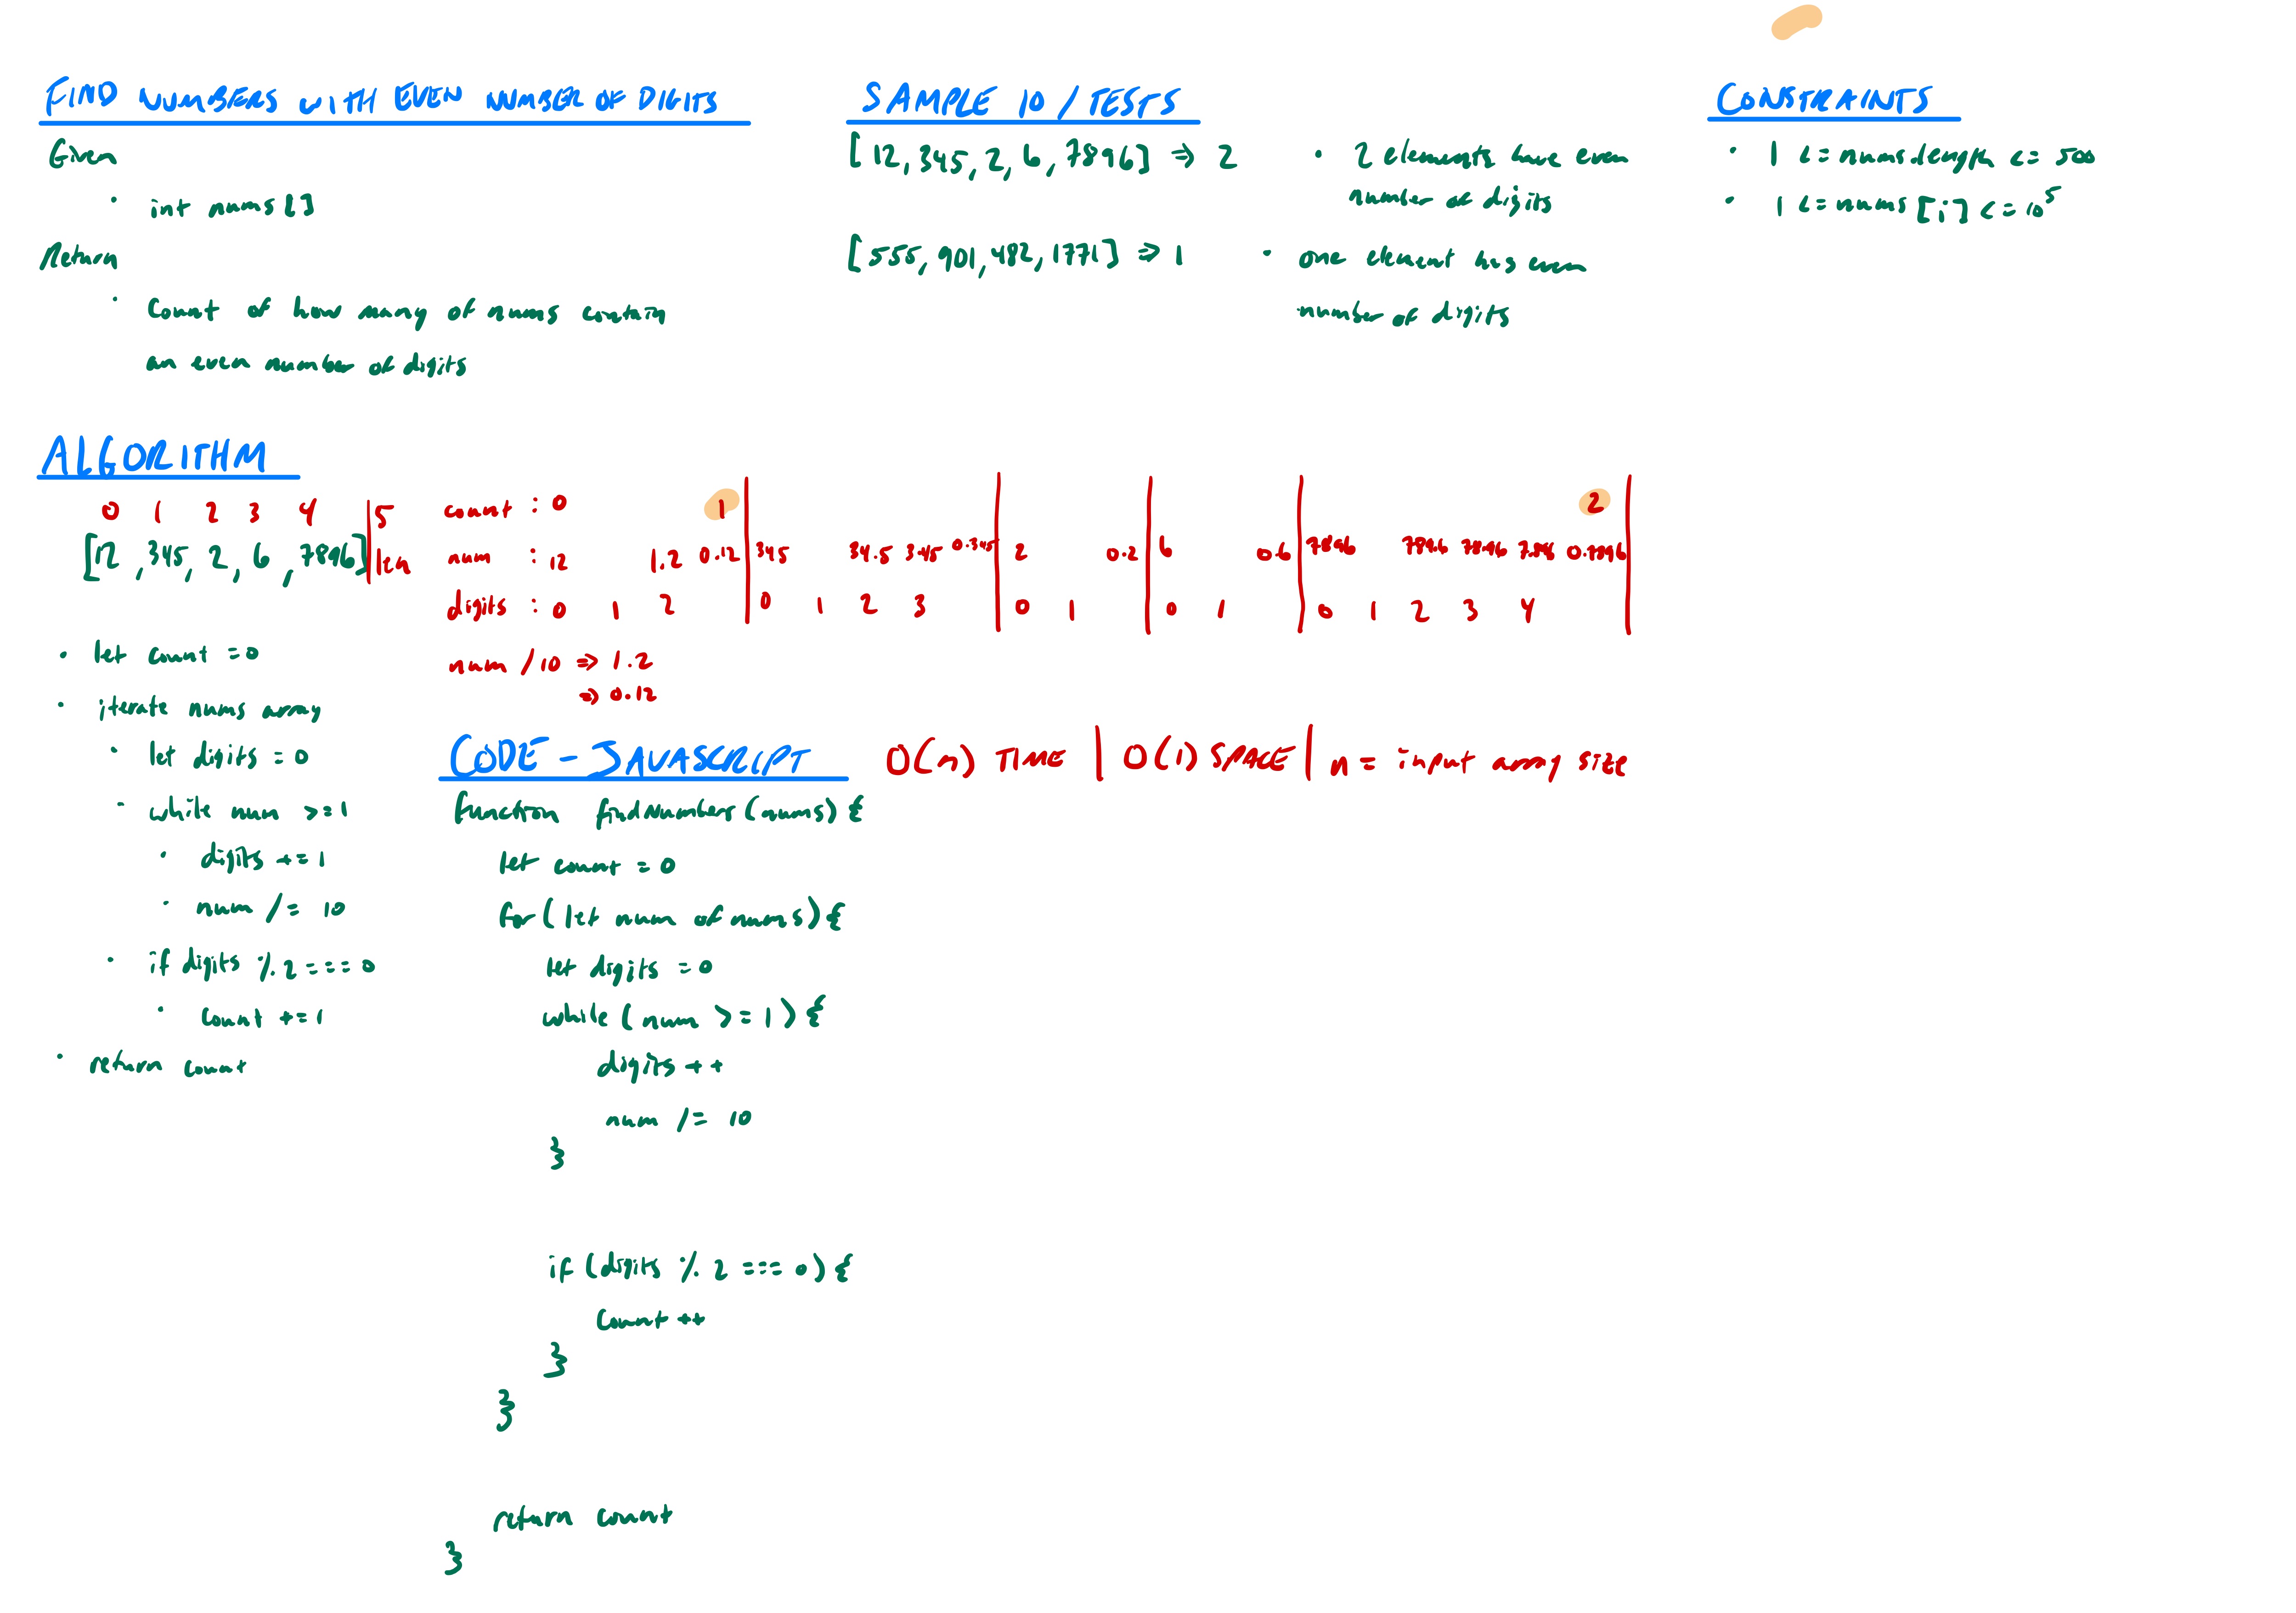 FIND NUMBERS WITH EVEN NUMBER OF DIGITS
Given
· int nums[]
Return
· Count of how many of nums contain
an even number of digits
SAMPLE IO / TESTS
[12, 345, 2, 6, 7896] => 2
· 2 elements have even
number of digits
[555, 901, 482, 1771] => 1
· one element has even
number of digits
CONSTRAINTS
· 1 <= nums.length <= 500
· 1 <= nums[i] <= 10^5
ALGORITHM
0 1 2 3 4 | 5
[12, 345, 2, 6, 7896] | len
count : 0 1 | | | | 2 |
num : 12 1.2 0.12 | 345 34.5 3.45 0.345 | 2 0.2 | 6 0.6 | 7896 789.6 78.96 7.896 0.7896 |
digits : 0 1 2 | 0 1 2 3 | 0 1 | 0 1 | 0 1 2 3 4 |
num / 10 => 1.2
=> 0.12
· let count = 0
· iterate nums array
· let digits = 0
· while num >= 1
· digits += 1
· num /= 10
· if digits % 2 === 0
· count += 1
· return count
CODE - JAVASCRIPT
O(n) TIME | O(1) SPACE | n = input array size
function findNumbers(nums) {
let count = 0
for (let num of nums) {
let digits = 0
while (num >= 1) {
digits ++
num /= 10
}
if (digits % 2 === 0) {
count ++
}
}
return count
}